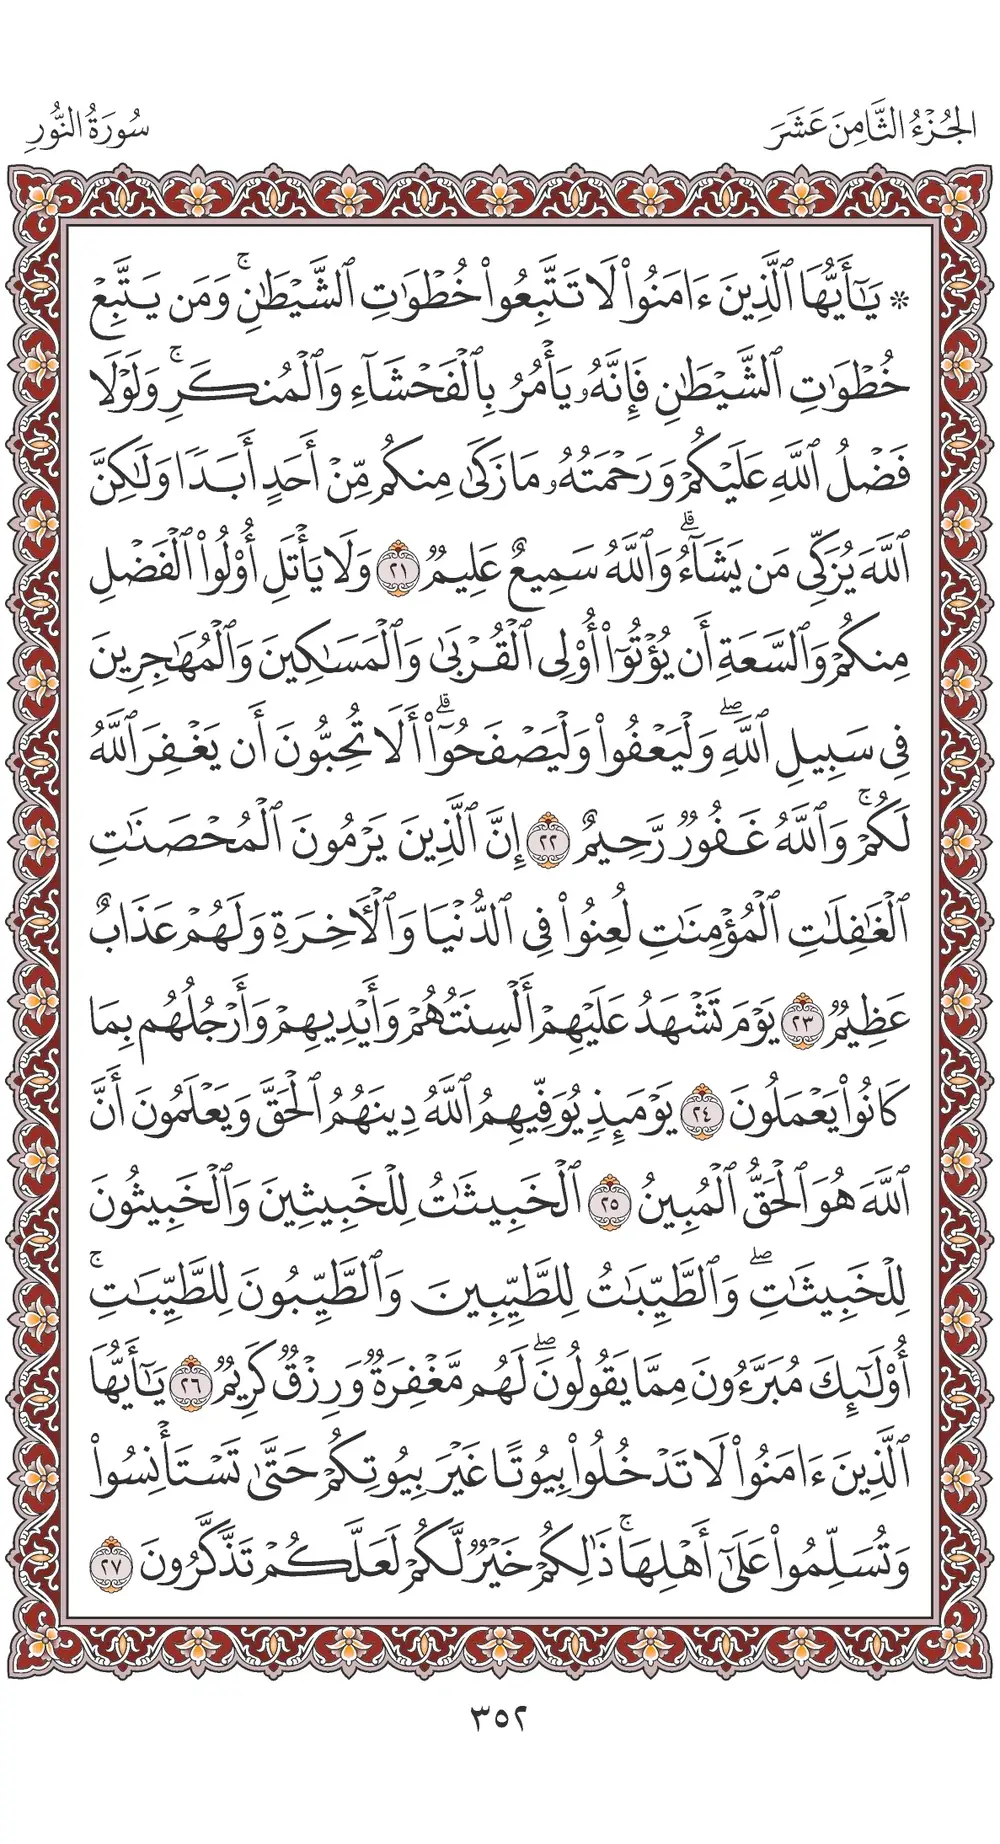 الجُزْءُ الثَّامِنَ عَشَرَ
سُورَةُ النُّورِ
۞ يَـٰٓأَيُّهَا ٱلَّذِينَ ءَامَنُوا۟ لَا تَتَّبِعُوا۟ خُطُوَٰتِ ٱلشَّيْطَـٰنِ ۚ وَمَن يَتَّبِعْ
خُطُوَٰتِ ٱلشَّيْطَـٰنِ فَإِنَّهُۥ يَأْمُرُ بِٱلْفَحْشَآءِ وَٱلْمُنكَرِ ۚ وَلَوْلَا
فَضْلُ ٱللَّهِ عَلَيْكُمْ وَرَحْمَتُهُۥ مَا زَكَىٰ مِنكُم مِّنْ أَحَدٍ أَبَدًا وَلَـٰكِنَّ
ٱللَّهَ يُزَكِّى مَن يَشَآءُ ۗ وَٱللَّهُ سَمِيعٌ عَلِيمٌ ٢١ وَلَا يَأْتَلِ أُو۟لُوا۟ ٱلْفَضْلِ
مِنكُمْ وَٱلسَّعَةِ أَن يُؤْتُوٓا۟ أُو۟لِى ٱلْقُرْبَىٰ وَٱلْمَسَـٰكِينَ وَٱلْمُهَـٰجِرِينَ
فِى سَبِيلِ ٱللَّهِ ۖ وَلْيَعْفُوا۟ وَلْيَصْفَحُوٓا۟ ۗ أَلَا تُحِبُّونَ أَن يَغْفِرَ ٱللَّهُ
لَكُمْ ۚ وَٱللَّهُ غَفُورٌ رَّحِيمٌ ٢٢ إِنَّ ٱلَّذِينَ يَرْمُونَ ٱلْمُحْصَنَـٰتِ
ٱلْغَـٰفِلَـٰتِ ٱلْمُؤْمِنَـٰتِ لُعِنُوا۟ فِى ٱلدُّنْيَا وَٱلْـَٔاخِرَةِ وَلَهُمْ عَذَابٌ
عَظِيمٌ ٢٣ يَوْمَ تَشْهَدُ عَلَيْهِمْ أَلْسِنَتُهُمْ وَأَيْدِيهِمْ وَأَرْجُلُهُم بِمَا
كَانُوا۟ يَعْمَلُونَ ٢٤ يَوْمَئِذٍ يُوَفِّيهِمُ ٱللَّهُ دِينَهُمُ ٱلْحَقَّ وَيَعْلَمُونَ أَنَّ
ٱللَّهَ هُوَ ٱلْحَقُّ ٱلْمُبِينُ ٢٥ ٱلْخَبِيثَـٰتُ لِلْخَبِيثِينَ وَٱلْخَبِيثُونَ
لِلْخَبِيثَـٰتِ ۖ وَٱلطَّيِّبَـٰتُ لِلطَّيِّبِينَ وَٱلطَّيِّبُونَ لِلطَّيِّبَـٰتِ ۚ
أُو۟لَـٰٓئِكَ مُبَرَّءُونَ مِمَّا يَقُولُونَ ۖ لَهُم مَّغْفِرَةٌ وَرِزْقٌ كَرِيمٌ ٢٦ يَـٰٓأَيُّهَا
ٱلَّذِينَ ءَامَنُوا۟ لَا تَدْخُلُوا۟ بُيُوتًا غَيْرَ بُيُوتِكُمْ حَتَّىٰ تَسْتَأْنِسُوا۟
وَتُسَلِّمُوا۟ عَلَىٰٓ أَهْلِهَا ۚ ذَٰلِكُمْ خَيْرٌ لَّكُمْ لَعَلَّكُمْ تَذَكَّرُونَ ٢٧
٣٥٢